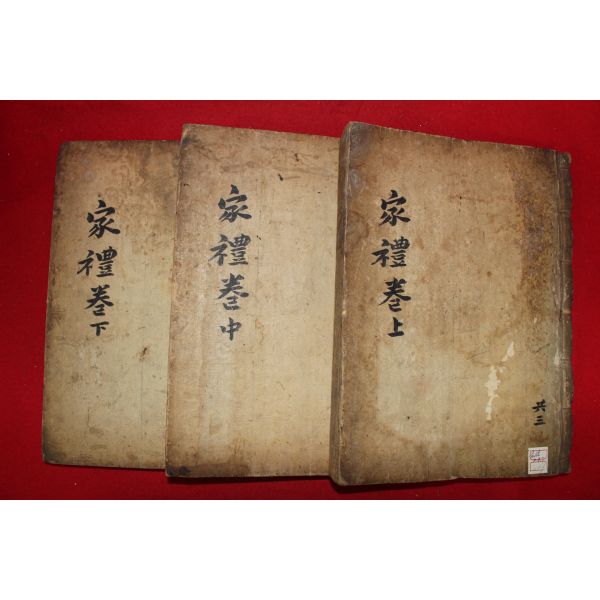 家禮卷上
共三
家禮卷中
家禮卷下